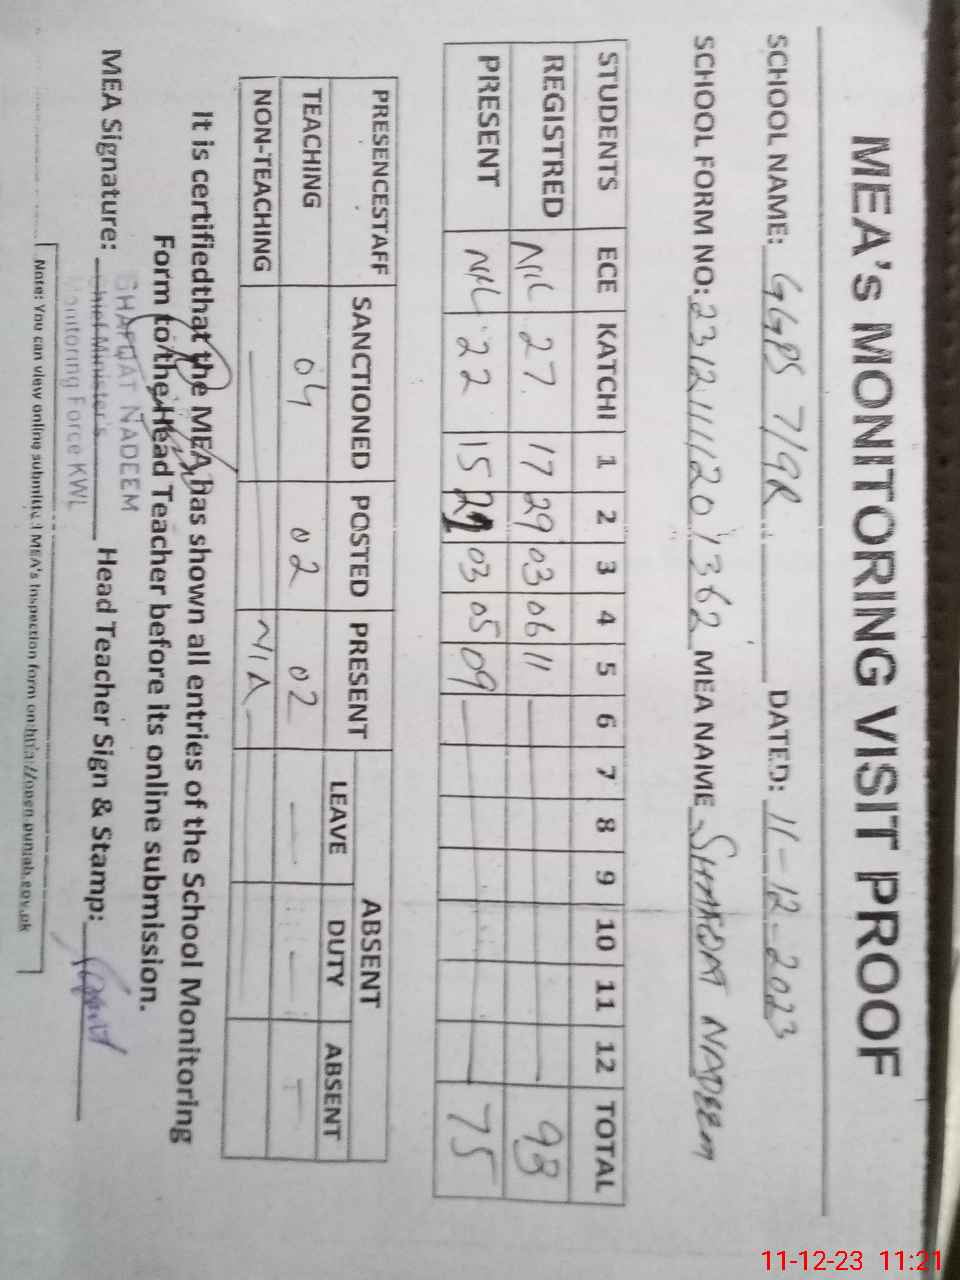 MEA's MONITORING VISIT PROOF
SCHOOL NAME: GGPS 7/9R DATED: 11-12-2023
SCHOOL FORM NO: 23121111201362 MEA NAME SHAFQAT NADEEM
STUDENTS ECE KATCHI 1 2 3 4 5 6 7 8 9 10 11 12 TOTAL
REGISTRED NIL 27 17 29 03 06 11 93
PRESENT NIL 22 15 21 03 05 09 75
PRESENCESTAFF SANCTIONED POSTED PRESENT ABSENT
LEAVE DUTY ABSENT
TEACHING 04 02 02 — — —
NON-TEACHING N/A
It is certifiedthat the MEA has shown all entries of the School Monitoring
Form to the Head Teacher before its online submission.
MEA Signature: Head Teacher Sign & Stamp:
SHAFQAT NADEEM
Chief Minister's
Monitoring Force KWL
Note: You can view online submitted MEA's Inspection form on http://open.punjab.gov.pk
11-12-23 11:21